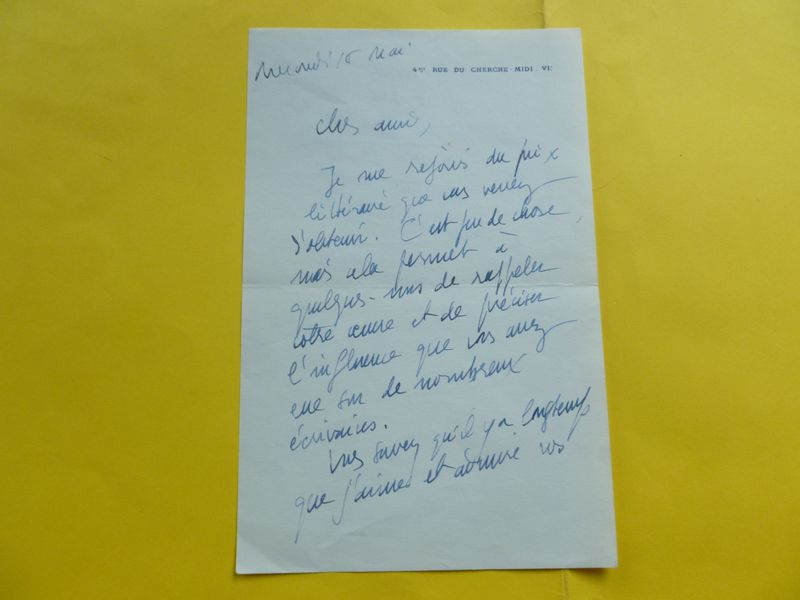 mercredi 16 Mai
RUE DU CHERCHE-MIDI. VIE
cher ami,
Je me réjouis du prix
littéraire que vous venez
d'obtenir. C'est peu de chose,
mais cela permet à
quelques-uns de rappeler
votre œuvre et de préciser
l'influence que vous avez
eue sur de nombreux
écrivains.
Vous savez qu'il y a longtemps
que j'aime et admire vos